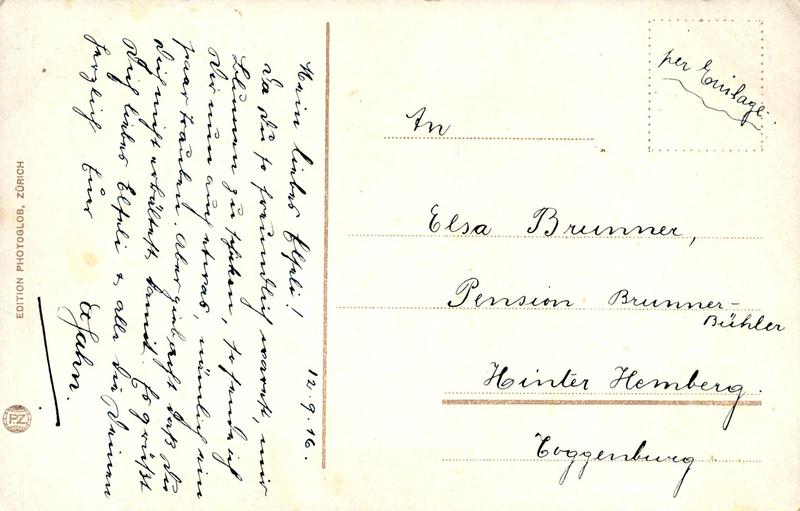 12.9.16.
Mein liebes Elseli!
Da Du so freundlich warest, mir
Blumen zu schiken, so sende ich
Dir nun auch etwas, nämlich ein
paar Trauben. Aber gieb acht daß Du
Dich nicht erkältest damit. Es grüßt
Dich liebes Elseli & alle die Deinen
herzlich Euer
Jahn.
EDITION PHOTOGLOB, ZÜRICH
PZ
per Einlage.
An
Elsa Brunner,
Pension Brunner-
Bühler
Hinter Hemberg.
Toggenburg